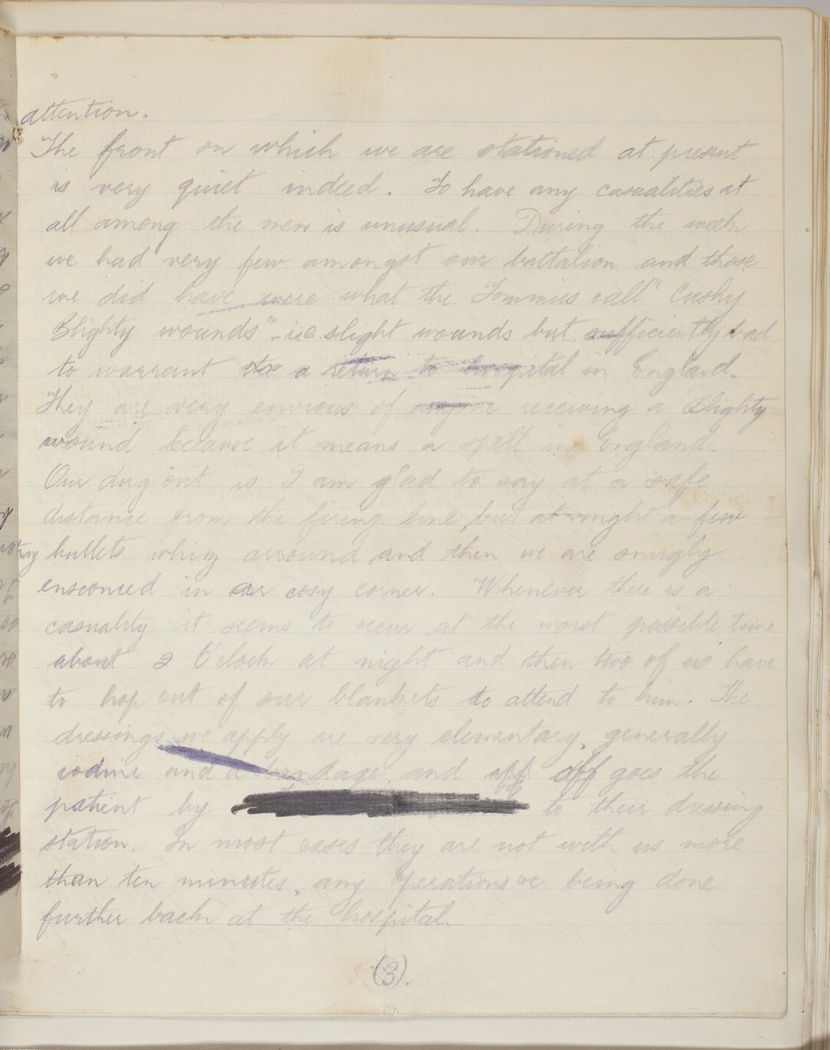 attention.
The front on which we are stationed at present
is very quiet indeed. To have any casualities at
all among the men is unusual. During the week
we had very few amongst our battalion and those
we did have were what the Tommies call "Cushy
Blighty wounds" - ie slight wounds but sufficiently bad
to warrant a return to hospital in England.
They are very envious of anyone receiving a Blighty
wound because it means a spell in England.
Our dug out is I am glad to say at a safe
distance from the firing line but at night a few
bullets whizz arround and then we are snugly
ensconced in our cosy corner. Whenever there is a
casuality it seems to occur at the worst possible time
about 2 O'clock at night and then two of us have
to hop out of our blankets to attend to him. The
dressings we apply are very elementary, generally
iodine and a bandage, and off goes the
patient by to their dressing
station. In most cases they are not with us more
than ten minutes, any operations being done
further back at the hospital.
(3).